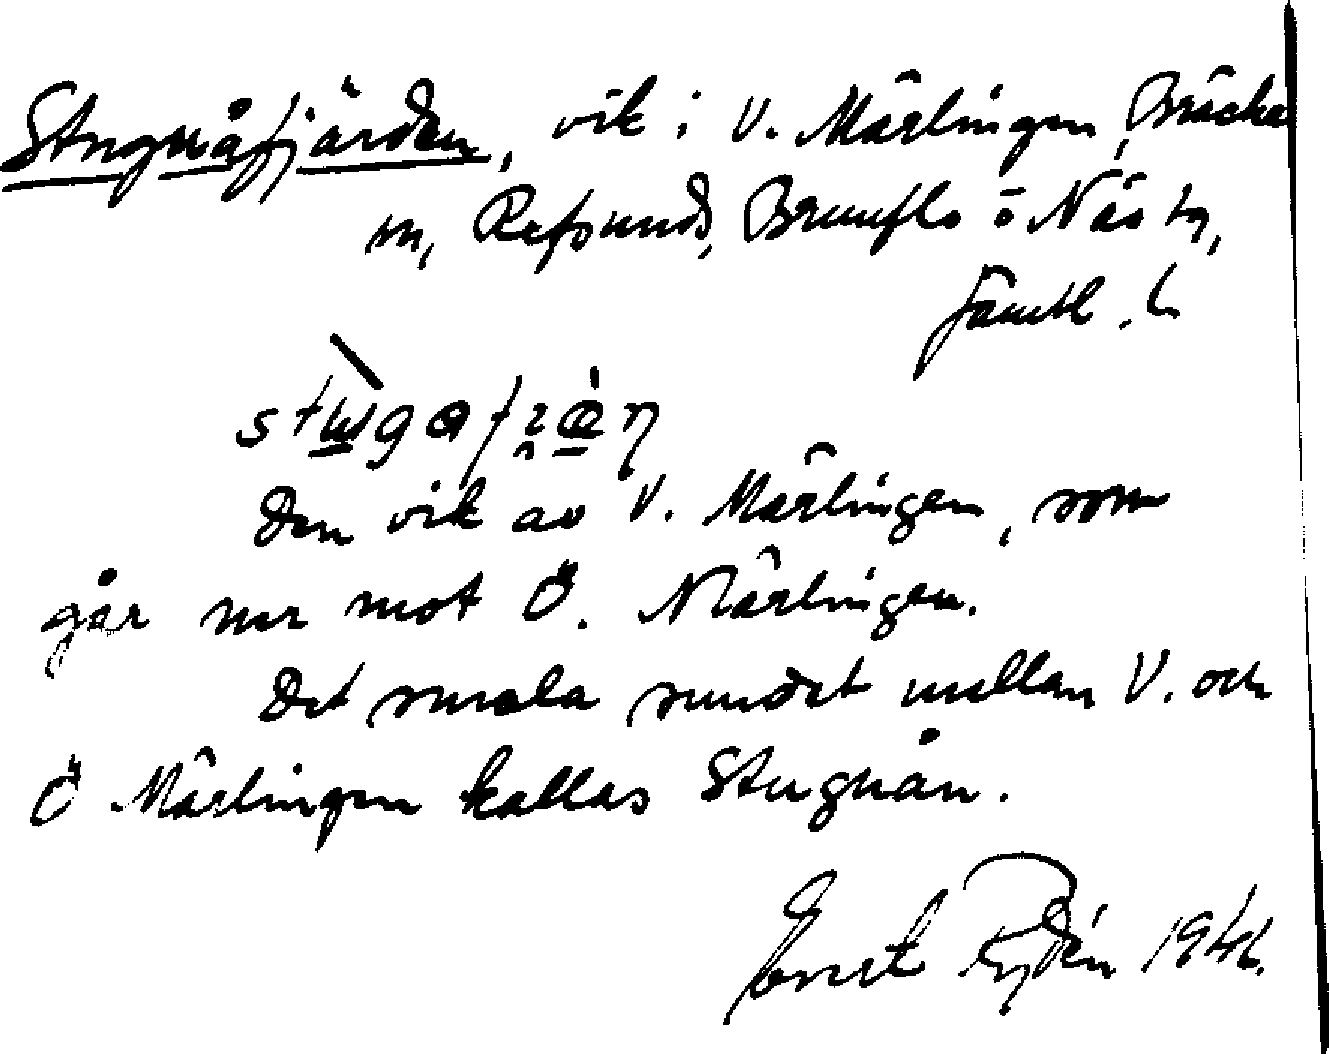 Stugnåfjärden, vik i V. Mårlingen, Bräcke
m, Refsunds, Brunflo o Näs tg,
Jämtl. l.
Den vik av V. Mårlingen, som
går ner mot Ö. Mårlingen.
Det smala sundet mellan V. och
Ö Mårlingen kallas Stugnån.
Ernst Rydén